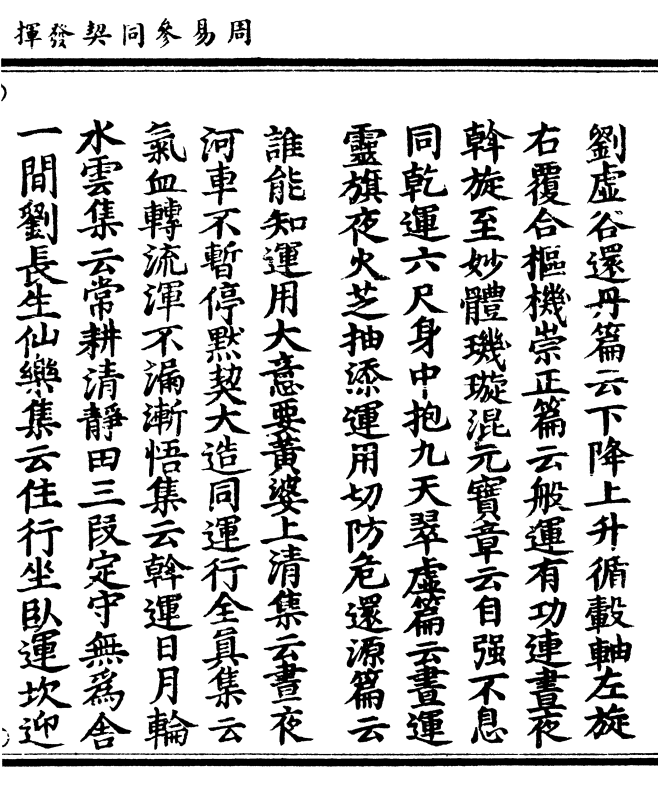 周易參同契發揮
劉虛谷還丹篇云下降上升循轂軸左旋
右覆合樞機崇正篇云般運有功連晝夜
斡旋至妙體璣璇混元寶章云自强不息
同乾運六尺身中抱九天翠虛篇云晝運
靈旗夜火芝抽添運用切防危還源篇云
誰能知運用大意要黃婆上清集云晝夜
河車不暫停默契大造同運行全眞集云
氣血轉流渾不漏漸悟集云斡運日月輪
水雲集云常耕清靜田三段定守無爲舍
一間劉長生仙樂集云住行坐臥運坎迎